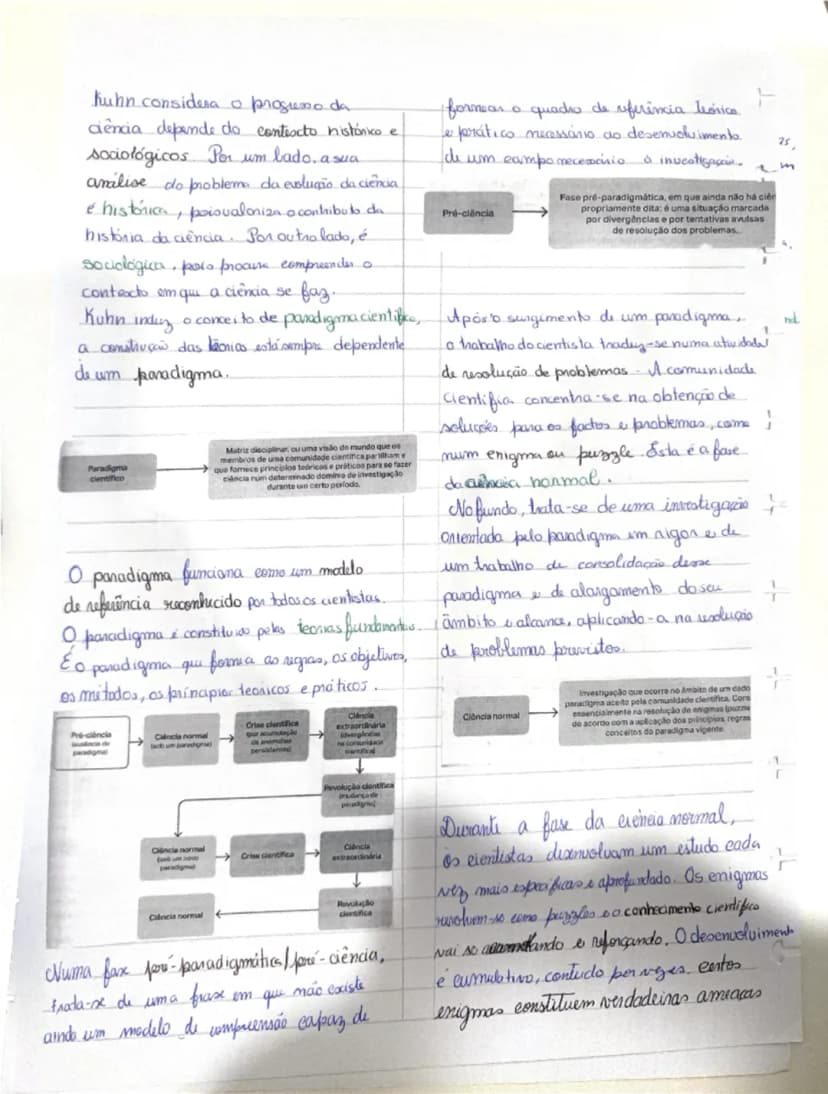 Kuhn considera o progresso da
ciência depende do contexto histórico e
sociológicos. Por um lado, a sua
análise do problema da evolução da ciência
é histórica, pois valoriza o contributo da
história da ciência. Por outro lado, é
sociológica, pois procura compreender o
contexto em que a ciência se faz.
Kuhn induz o conceito de paradigma científico,
a construção das teorias está sempre dependente
de um paradigma.
Paradigma
científico
Matriz disciplinar, ou uma visão do mundo que os
membros de uma comunidade científica partilham e
que fornece princípios teóricos e práticos para se fazer
ciência num determinado domínio de investigação
durante um certo período.
O paradigma funciona como um modelo
de referência reconhecido por todos os cientistas.
O paradigma é constituído pelas teorias fundamentais.
É o paradigma que fornece as regras, os objetivos,
os métodos, os princípios teóricos e práticos.
Pré-ciência
(ausência de
paradigma)
Ciência normal
(sob um paradigma)
Crise científica
(por acumulação
de anomalias
persistentes)
Ciência
extraordinária
(divergências
na comunidade
científica)
Revolução científica
(mudança de
paradigma)
Ciência normal
(sob um novo
paradigma)
Crise científica
Ciência
extraordinária
Revolução
científica
Ciência normal
Numa fase pré-paradigmática/pré-ciência,
trata-se de uma frase em que não existe
ainda um modelo de compreensão capaz de
formear o quadro de referência teórico
e prático necessário ao desenvolvimento
de um campo necessário à investigação.
Pré-ciência
Fase pré-paradigmática, em que ainda não há ciên
propriamente dita; é uma situação marcada
por divergências e por tentativas avulsas
de resolução dos problemas.
Após o surgimento de um paradigma,
o trabalho do cientista traduz-se numa atividade
de resolução de problemas. A comunidade
científia concentra-se na obtenção de
soluções para os factos e problemas, como
num enigma ou puzzle. Esta é a fase
da ciência normal.
No fundo, trata-se de uma investigação
orientada pelo paradigma em rigor e de
um trabalho de consolidação desse
paradigma e de alargamento do seu
âmbito e alcance, aplicando-a na resolução
de problemas previstos.
Ciência normal
Investigação que ocorre no âmbito de um dado
paradigma aceito pela comunidade científica. Cons
essencialmente na resolução de enigmas (puzzle
de acordo com a aplicação dos princípios, regras
conceitos do paradigma vigente.
Durante a fase da ciência normal,
os cientistas desenvolvam um estudo cada
vez mais específicas e aprofundado. Os enigmas
resolvem-se como puzzles e o conhecimento científico
vai se acumulando e reforçando. O desenvolviment
é cumulativo, contudo por vezes, certos
enigmas constituem verdadeiras ameaças